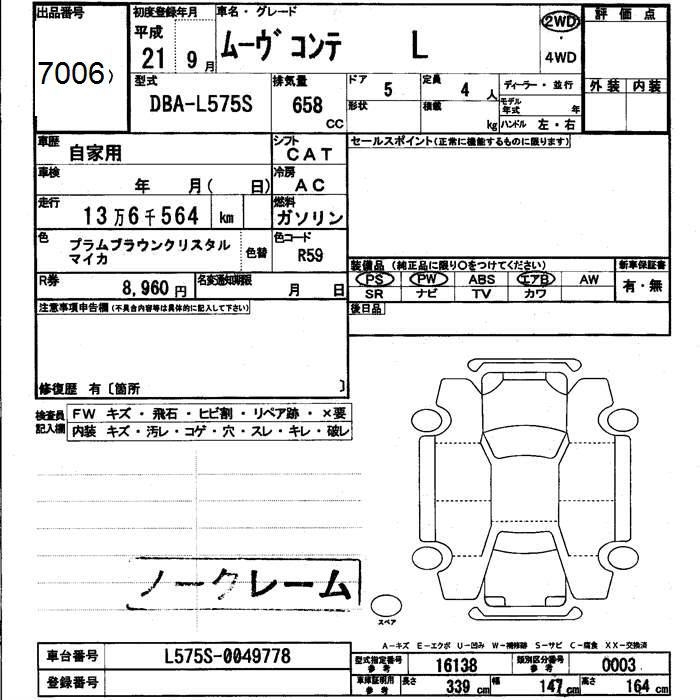 出品番号
7006
初度登録年月
平成
21 9月
車名・グレード
ムーヴ コンテ L
2WD
・
4WD
評価点
外装 内装
型式
DBA-L575S
排気量
658
CC
ドア
5
定員
4 人
形状
積載
kg
ディーラー・並行
モデル年式 年
ハンドル 左・右
車歴
自家用
シフト
CAT
車検
年 月( 日)
冷房
AC
走行
13万6千564 km
燃料
ガソリン
色
プラムブラウンクリスタル
マイカ
色替
色コード
R59
R券
8,960円
名変通知期限
月 日
セールスポイント(正常に機能するものに限ります)
装備品 (純正品に限り〇をつけてください)
PS PW ABS エアB AW
SR ナビ TV カワ
新車保証書
有・無
後日品
注意事項申告欄(不具合内容等は具体的に記入して下さい)
修復歴 有〔箇所 〕
検査員
記入欄
FW キズ・飛石・ヒビ割・リペア跡・×要
内装 キズ・汚レ・コゲ・穴・スレ・キレ・破レ
ノークレーム
スペア
A-キズ E-エクボ U-凹み W-補修跡 S-サビ C-腐食 XX-交換済
車台番号
L575S-0049778
登録番号
型式指定番号
参考
16138
類別区分番号
参考
0003
車庫証明用
参考
長さ 339 cm 幅 147 cm 高さ 164 cm